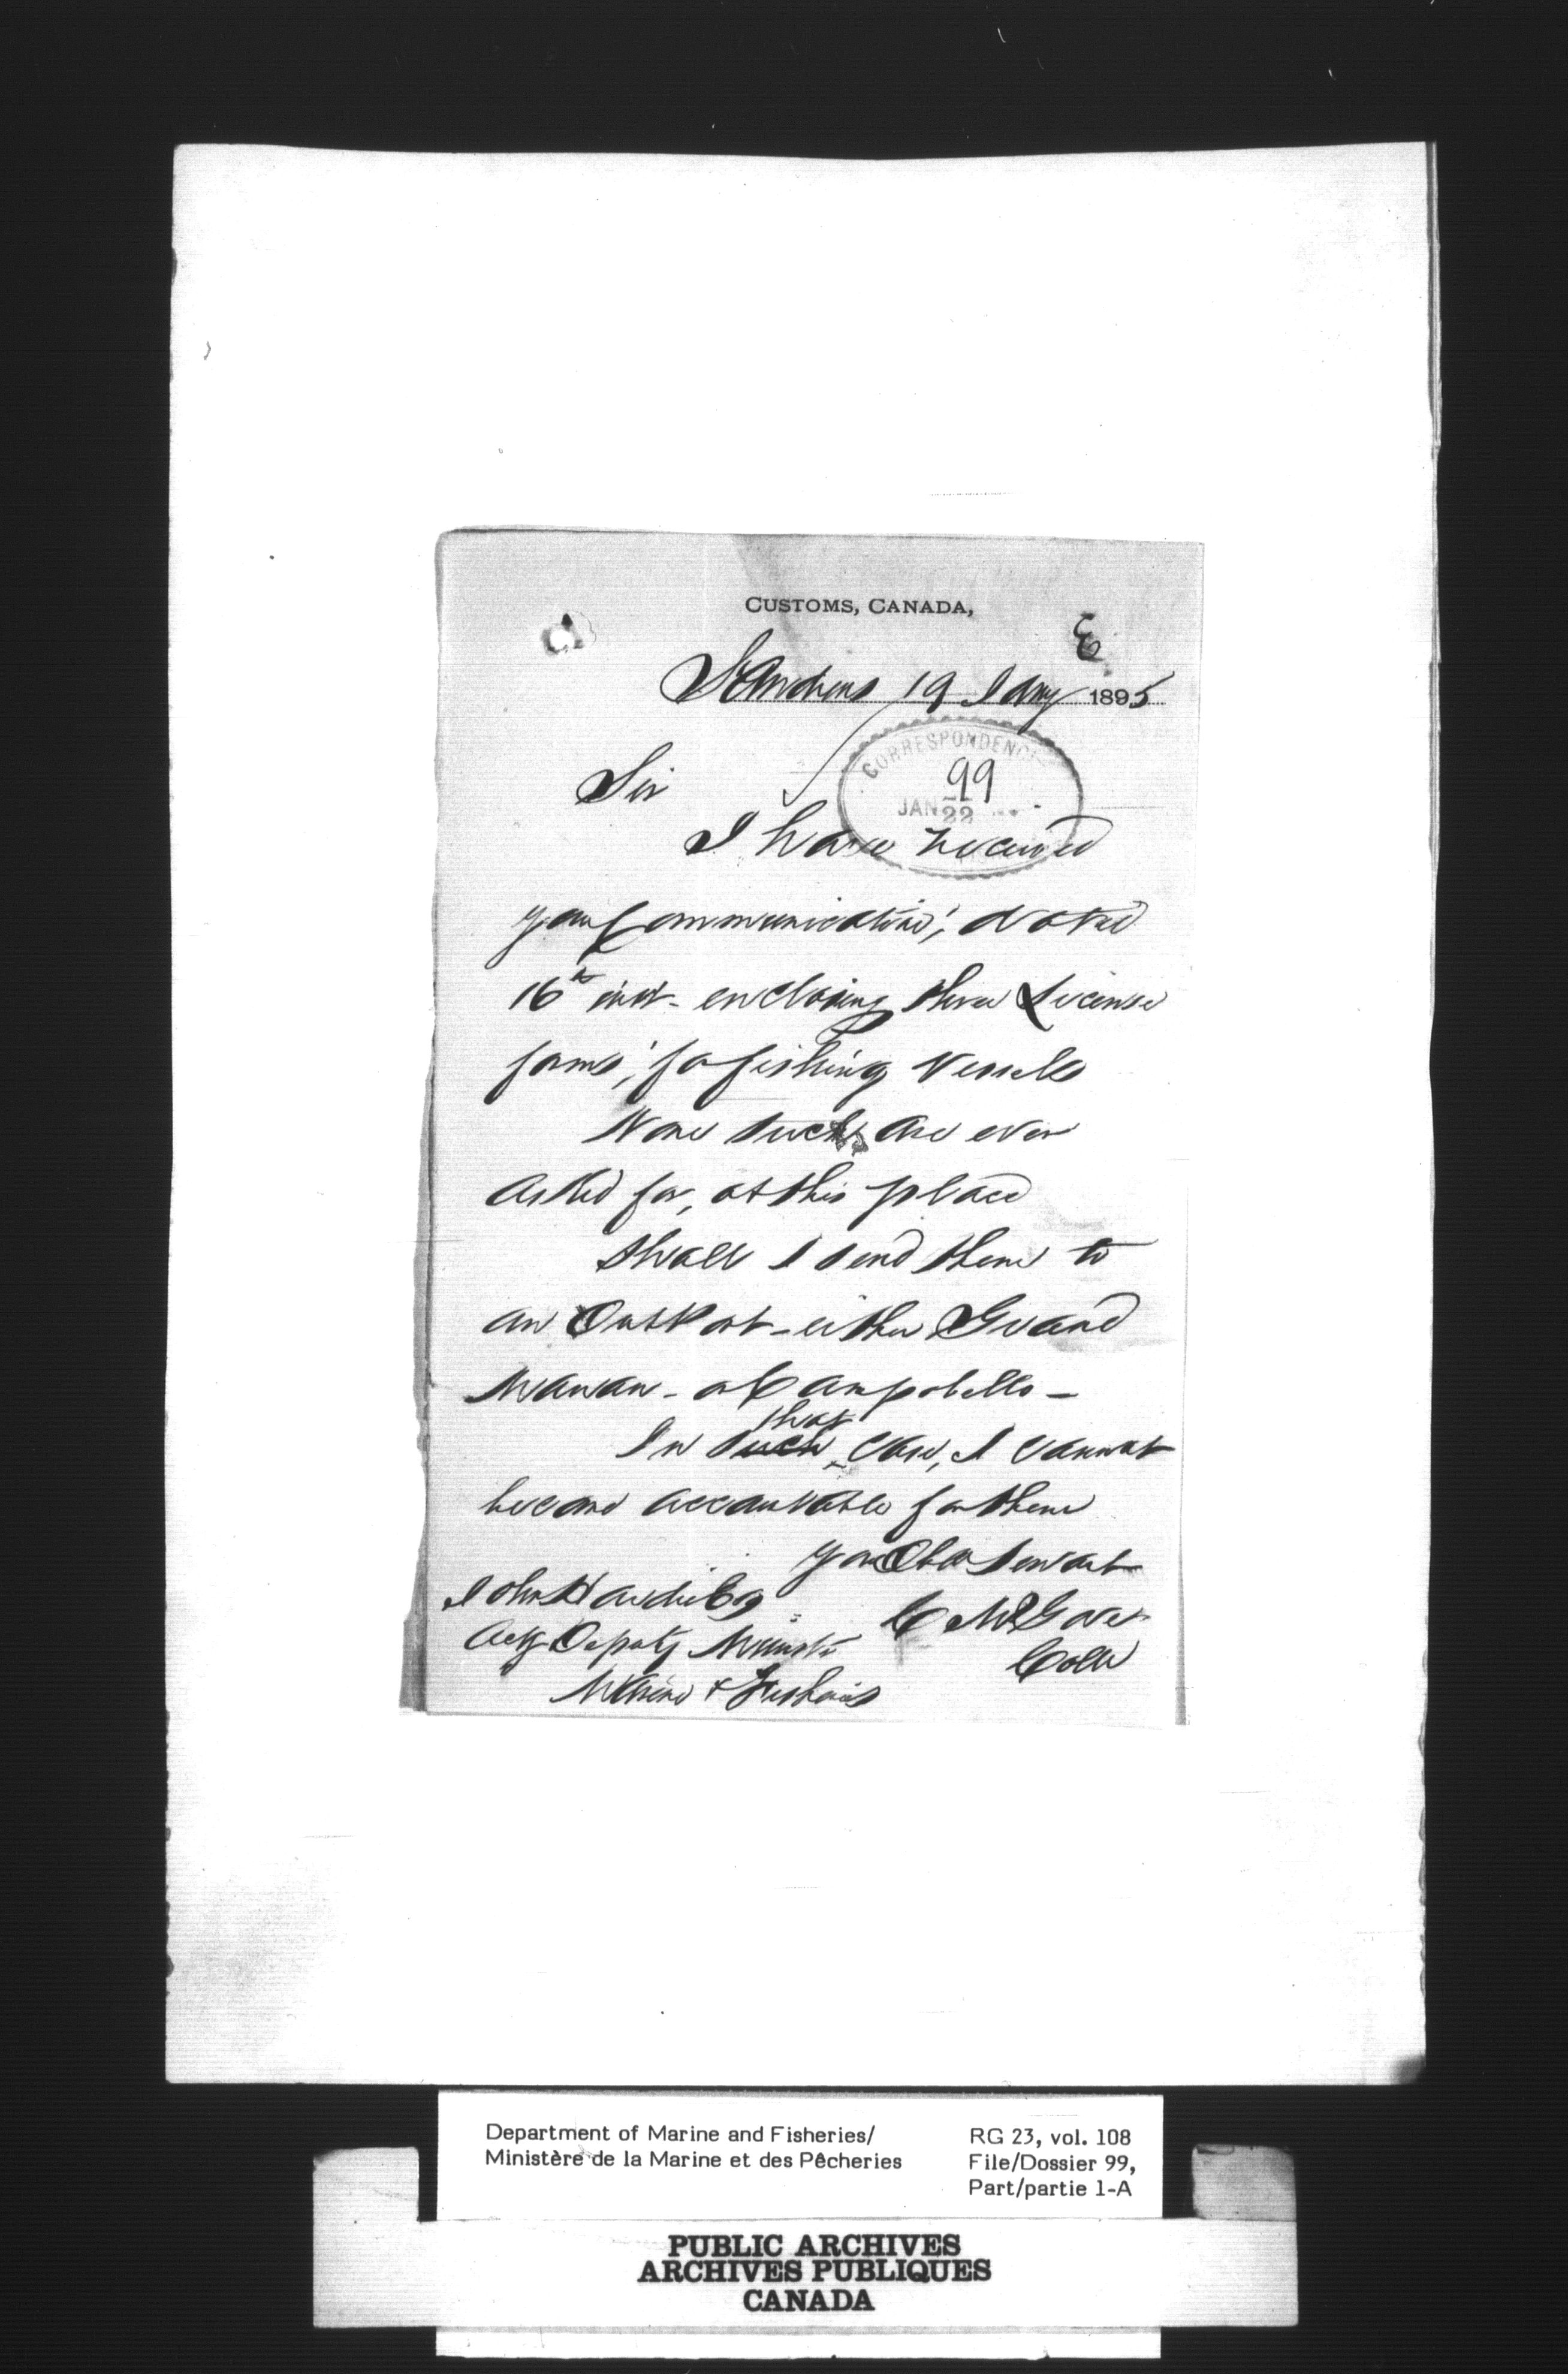 CUSTOMS, CANADA,
E
St Andrews 19 Jany 1895
CORRESPONDENCE
99
JAN 22
Sir
I have received
your Communication, dated
16th inst - enclosing three License
forms, for fishing Vessels
None such are ever
asked for, at this place
Shall I send them to
an OutPort - either Grand
Manan - or Campobello -
that
In such case, I cannot
become accountable for them
Your Obt Servant
John Hardie Esq
C M Gove
Actg Deputy Minister
Collr
Marine & Fisheries
Department of Marine and Fisheries/
Ministère de la Marine et des Pêcheries
RG 23, vol. 108
File/Dossier 99,
Part/partie 1-A
PUBLIC ARCHIVES
ARCHIVES PUBLIQUES
CANADA